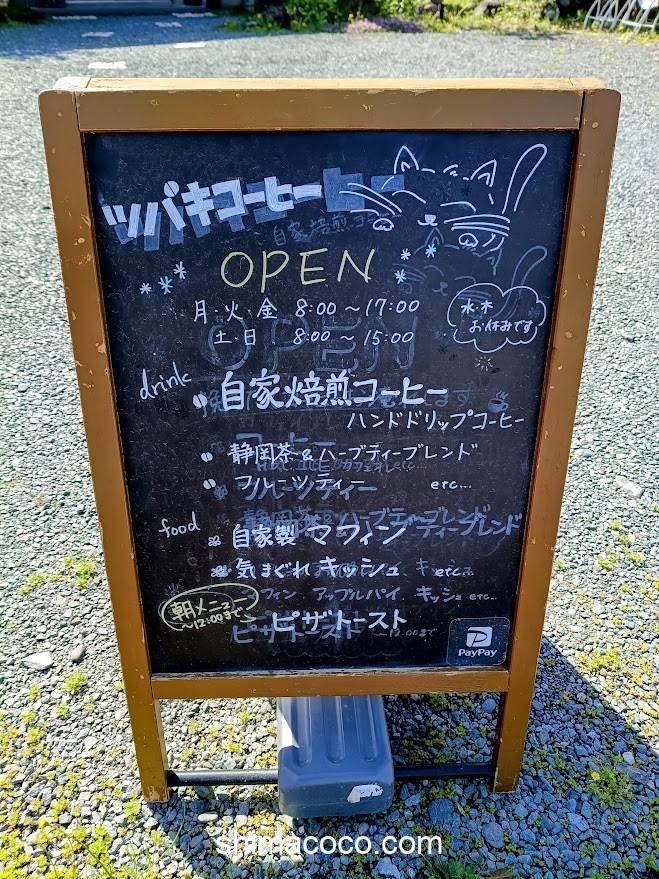 ツバキコーヒー
自家焙煎コーヒー
OPEN
月・火・金 8:00 〜 17:00
土・日 8:00 〜 15:00
水・木
お休みです
drink
自家焙煎コーヒー
ハンドドリップコーヒー
静岡茶&ハーブティーブレンド
フルーツティー etc...
food
自家製マフィン
気まぐれキッシュ etc...
朝メニュー
〜12:00まで
ピザトースト
PayPay
shimacoco.com